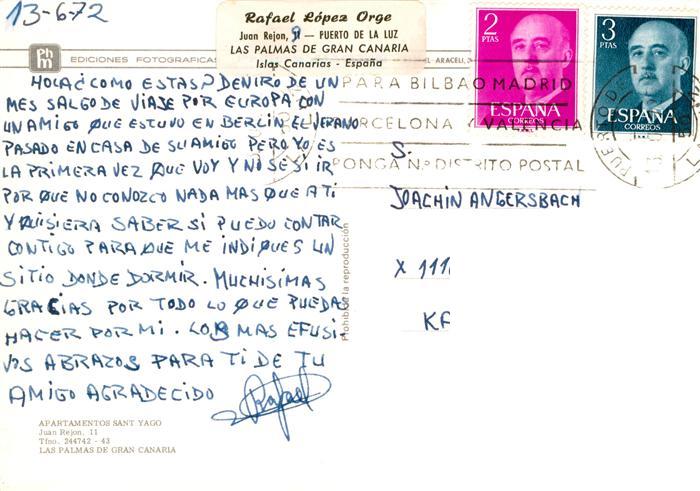 13-6-72
Rafael López Orge
Juan Rejon, 9 — PUERTO DE LA LUZ
LAS PALMAS DE GRAN CANARIA
Islas Canarias - España
2
PTAS
ESPAÑA
CORREOS
3
PTAS
ESPAÑA
CORREOS
Phm EDICIONES FOTOGRAFICAS
EL-ARACELI, 3
PARA BILBAO MADRID
BARCELONA Y VALENCIA
PONGA Nº DISTRITO POSTAL
HOLA¿COMO ESTAS? DENTRO DE UN
MES SALGO DE VIAJE POR EUROPA CON
UN AMIGO QUE ESTUVO EN BERLIN EL VERANO
PASADO EN CASA DE SU AMIGO PERO YO ES
LA PRIMERA VEZ QUE VOY Y NO SE SI IR
POR QUE NO CONOZCO NADA MAS QUE A TI
Y QUISIERA SABER SI PUEDO CONTAR
CONTIGO PARA QUE ME INDIQUES UN
SITIO DONDE DORMIR. MUCHISIMAS
GRACIAS POR TODO LO QUE PUEDAS
HACER POR MI. LOS MAS EFUSI-
VOS ABRAZOS PARA TI DE TU
AMIGO AGRADECIDO Rafael
S.
JOACHIN ANGERSBACH
X 111
KA
Prohibida la reproducción
APARTAMENTOS SANT YAGO
Juan Rejon, 11
Tfno. 244742 - 43
LAS PALMAS DE GRAN CANARIA